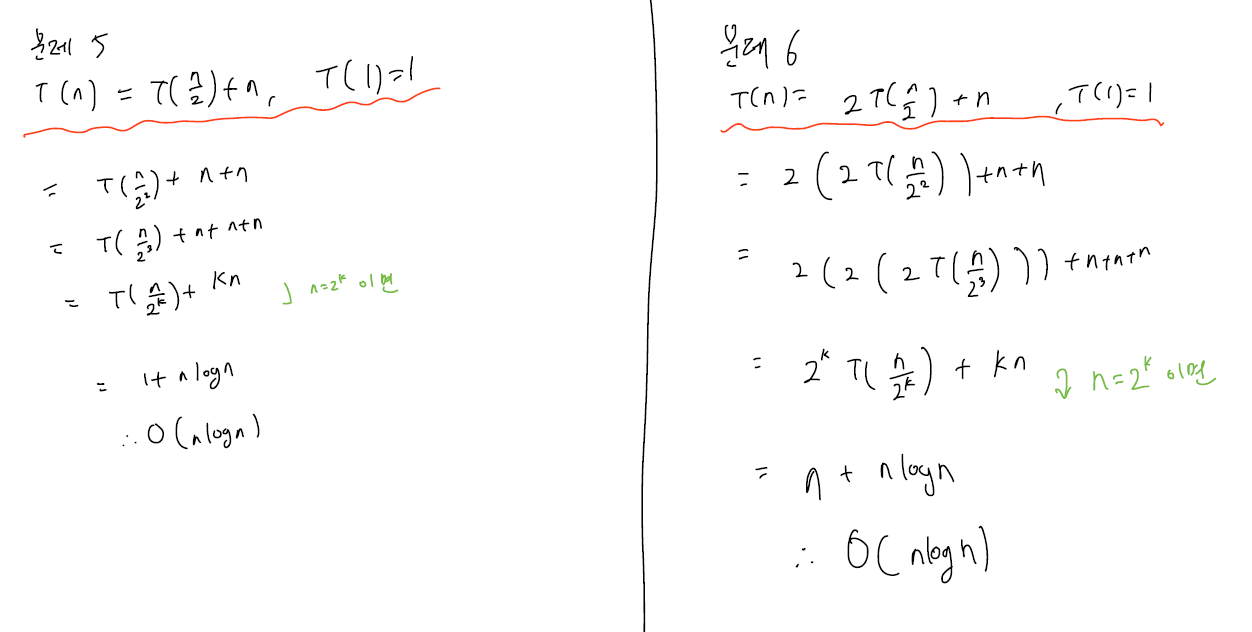 문제 5
T(n) = T(n/2)+n, T(1)=1
= T(n/2²)+ n+n
= T(n/2³) + n+ n+n
= T(n/2ᵏ)+ Kn ↓ n=2ᵏ 이면
= 1+ nlogn
∴ O(nlogn)
문제 6
T(n)= 2T(n/2)+n , T(1)=1
= 2(2T(n/2²))+n+n
= 2(2(2T(n/2³)))+n+n+n
= 2ᵏ T(n/2ᵏ) + kn ↓ n=2ᵏ 이면
= n + nlogn
∴ O(nlogn)